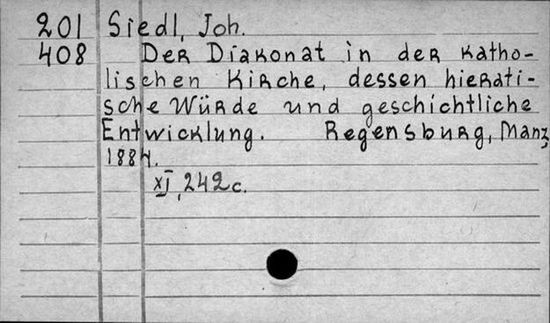 201 Siedl, Joh.
408 Der Diakonat in der katho-
lischen Kirche, dessen hierati-
sche Würde und geschichtliche
Entwicklung. Regensburg, Manz,
1884.
XI, 242c.